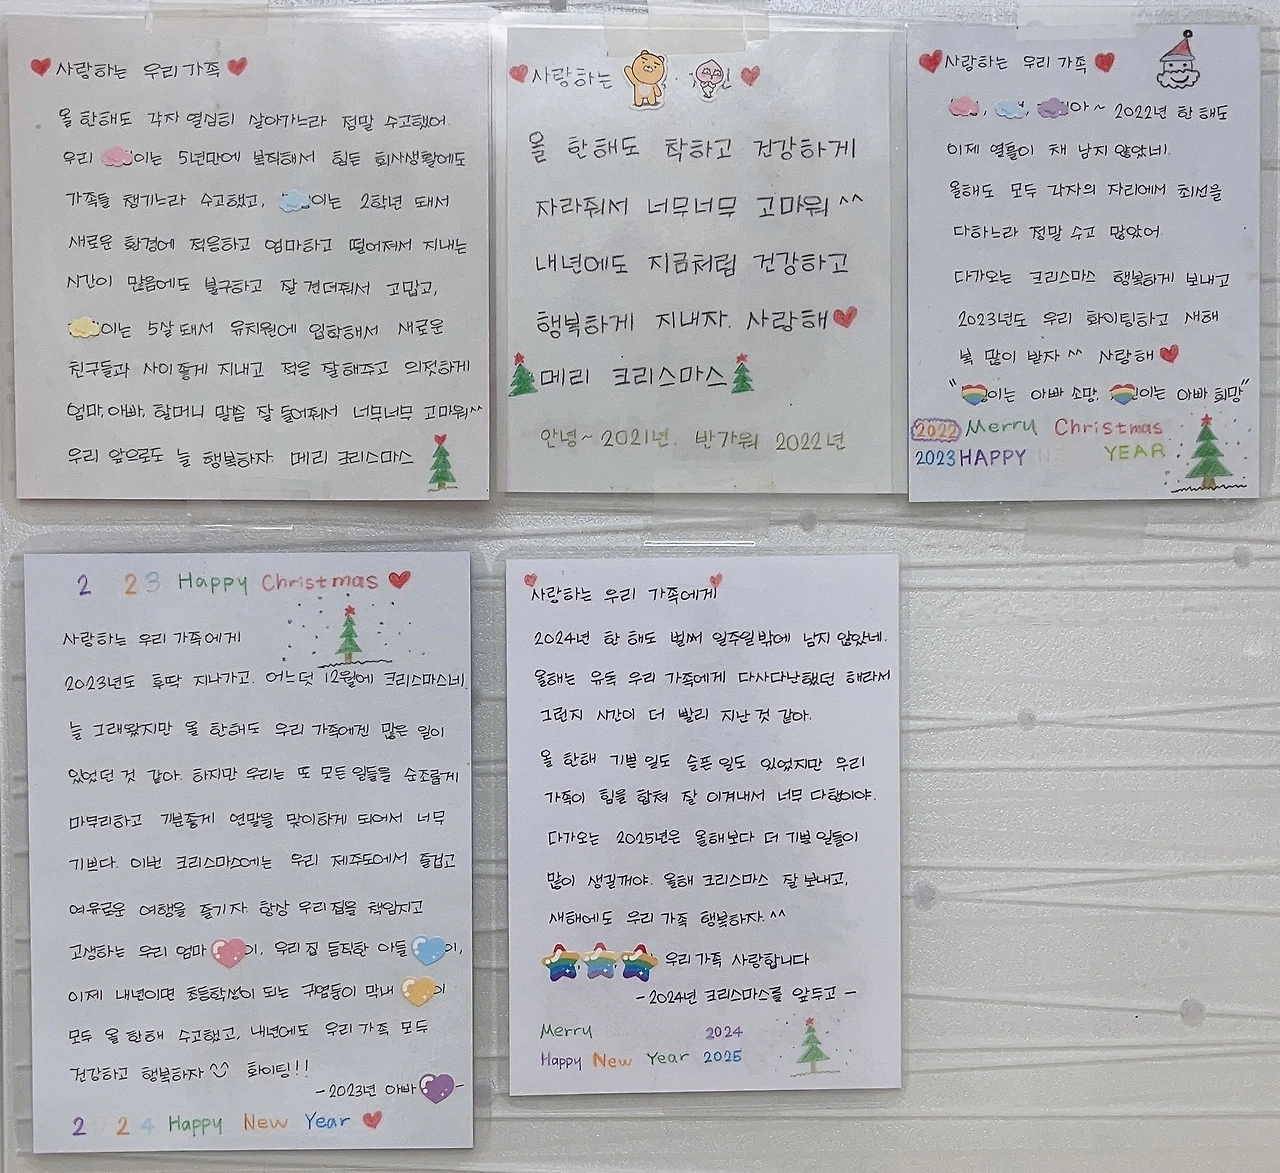 사랑하는 우리 가족
올 한해도 각자 열심히 살아가느라 정말 수고했어.
우리 이는 5년만에 복직해서 힘든 회사생활에도
가족들 챙기느라 수고했고, 이는 2학년 돼서
새로운 환경에 적응하고 엄마하고 떨어져서 지내는
시간이 많음에도 불구하고 잘 견뎌줘서 고맙고,
이는 5살 돼서 유치원에 입학해서 새로운
친구들과 사이좋게 지내고 적응 잘해주고 의젓하게
엄마, 아빠, 할머니 말씀 잘 들어줘서 너무너무 고마워^^
우리 앞으로도 늘 행복하자. 메리 크리스마스
사랑하는
올 한해도 착하고 건강하게
자라줘서 너무너무 고마워^^
내년에도 지금처럼 건강하고
행복하게 지내자. 사랑해
메리 크리스마스
안녕~ 2021년. 반가워 2022년
사랑하는 우리 가족
, , 아~ 2022년 한 해도
이제 열흘이 채 남지 않았네.
올해도 모두 각자의 자리에서 최선을
다하느라 정말 수고 많았어
다가오는 크리스마스 행복하게 보내고
2023년도 우리 화이팅하고 새해
복 많이 받자^^ 사랑해
"이는 아빠 소망, 이는 아빠 희망"
2022 Merry Christmas
2023 HAPPY YEAR
2 23 Happy Christmas
사랑하는 우리 가족에게
2023년도 후딱 지나가고. 어느덧 12월에 크리스마스네.
늘 그래왔지만 올 한해도 우리 가족에겐 많은 일이
있었던 것 같아. 하지만 우리는 또 모든 일들을 순조롭게
마무리하고 기분좋게 연말을 맞이하게 되어서 너무
기쁘다. 이번 크리스마스에는 우리 제주도에서 즐겁고
여유로운 여행을 즐기자. 항상 우리집을 책임지고
고생하는 우리 엄마 이, 우리집 듬직한 아들 이,
이제 내년이면 초등학생이 되는 귀염둥이 막내 이
모두 올 한해 수고했고, 내년에도 우리 가족 모두
건강하고 행복하자^^ 화이팅!!
-2023년 아빠 -
2 24 Happy New Year
사랑하는 우리 가족에게
2024년 한 해도 벌써 일주일밖에 남지 않았네.
올해는 유독 우리 가족에게 다사다난했던 해라서
그런지 시간이 더 빨리 지난 것 같아.
올 한해 기쁜 일도 슬픈 일도 있었지만 우리
가족이 힘을 합쳐 잘 이겨내서 너무 다행이야.
다가오는 2025년은 올해보다 더 기쁠 일들이
많이 생길꺼야. 올해 크리스마스 잘 보내고,
새해에도 우리 가족 행복하자.^^
우리가족 사랑합니다
-2024년 크리스마스를 앞두고-
Merry 2024
Happy New Year 2025